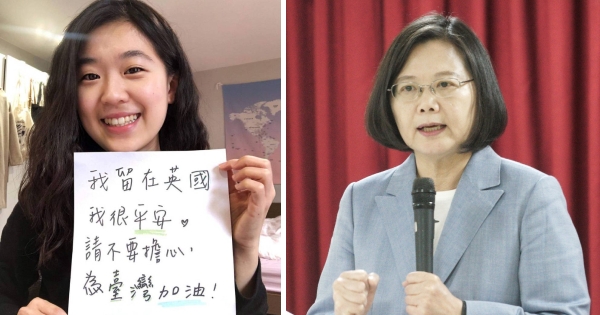 我留在英國
我很平安。
請不要擔心,
為臺灣加油!